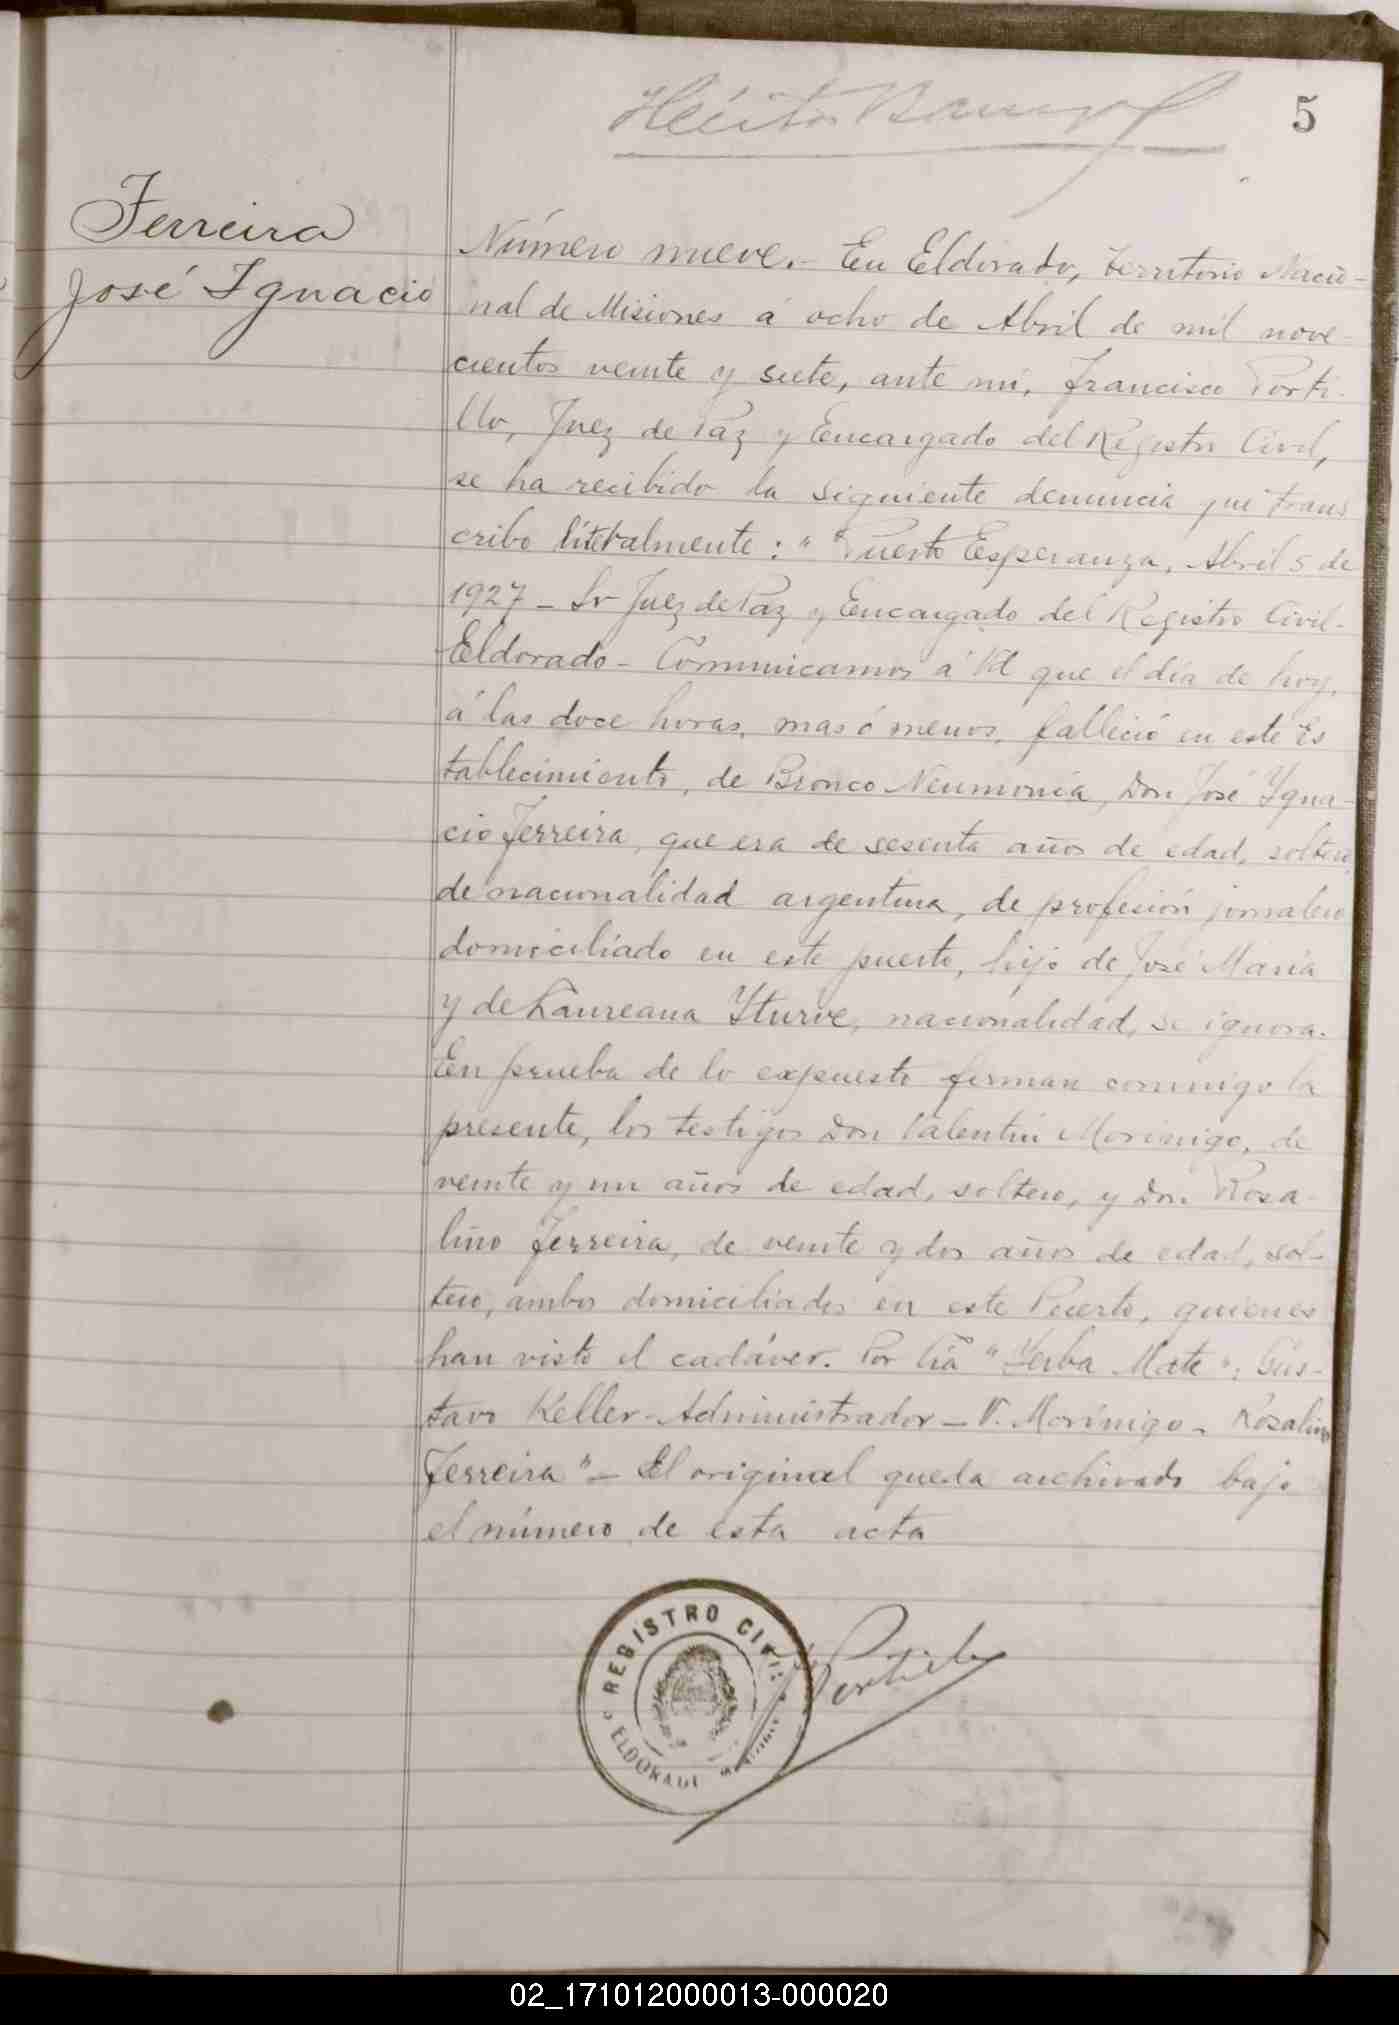 5
Ferreira
José Ygnacio
Número nueve.- En Eldorado, territorio Nacio-
nal de Misiones á ocho de Abril de mil nove-
cientos veinte y siete, ante mí, Francisco Porti-
llo, Juez de Paz y Encargado del Registro Civil,
se ha recibido la siguiente denuncia que trans
cribo literalmente: " Puerto Esperanza, Abril 5 de
1927 - Sr Juez de Paz y Encargado del Registro Civil-
Eldorado - Comunicamos á Vd que el día de hoy,
á las doce horas, mas ó menos, falleció en este Es
tablecimiento, de Bronco Neumonía, Don José Ygna-
cio Ferreira, que era de sesenta años de edad, soltero,
de nacionalidad argentina, de profesión jornalero
domiciliado en este puerto, hijo de José María
y de Laureana Yturve, nacionalidad, se ignora.
En prueba de lo expuesto firman conmigo la
presente, los testigos Don Valentín Morínigo, de
veinte y un años de edad, soltero, y Don Rosa-
lino Ferreira, de veinte y dos años de edad, sol-
tero, ambos domiciliados en este Puerto, quienes
han visto el cadáver. Por Cía "Yerba Mate": Gus-
tavo Keller - Administrador - V. Morínigo - Rosalino
Ferreira" - El original queda archivado bajo
el número de esta acta
REGISTRO CIVIL
ELDORADO
Portillo
02_171012000013-000020